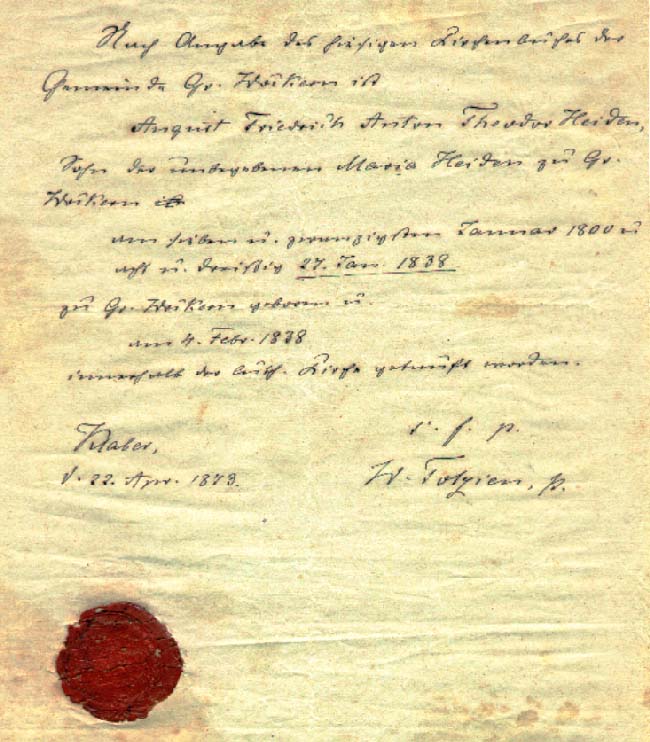 Nach Angabe des hiesigen Kirchenbuches der
Gemeinde Gr. Wokern ist
August Friedrich Anton Theodor Heiden,
Sohn der unbegebenen Maria Heiden zu Gr.
Wokern
am sieben u. zwanzigsten Januar 1800 u
acht u. dreißig 27. Jan. 1838
zu Gr. Wokern geboren u.
am 4. Febr. 1838
innerhalb der luth. Kirche getauft worden.
Klaber,
d. 22. Apr. 1873.
p.
W. Tolzien, p.